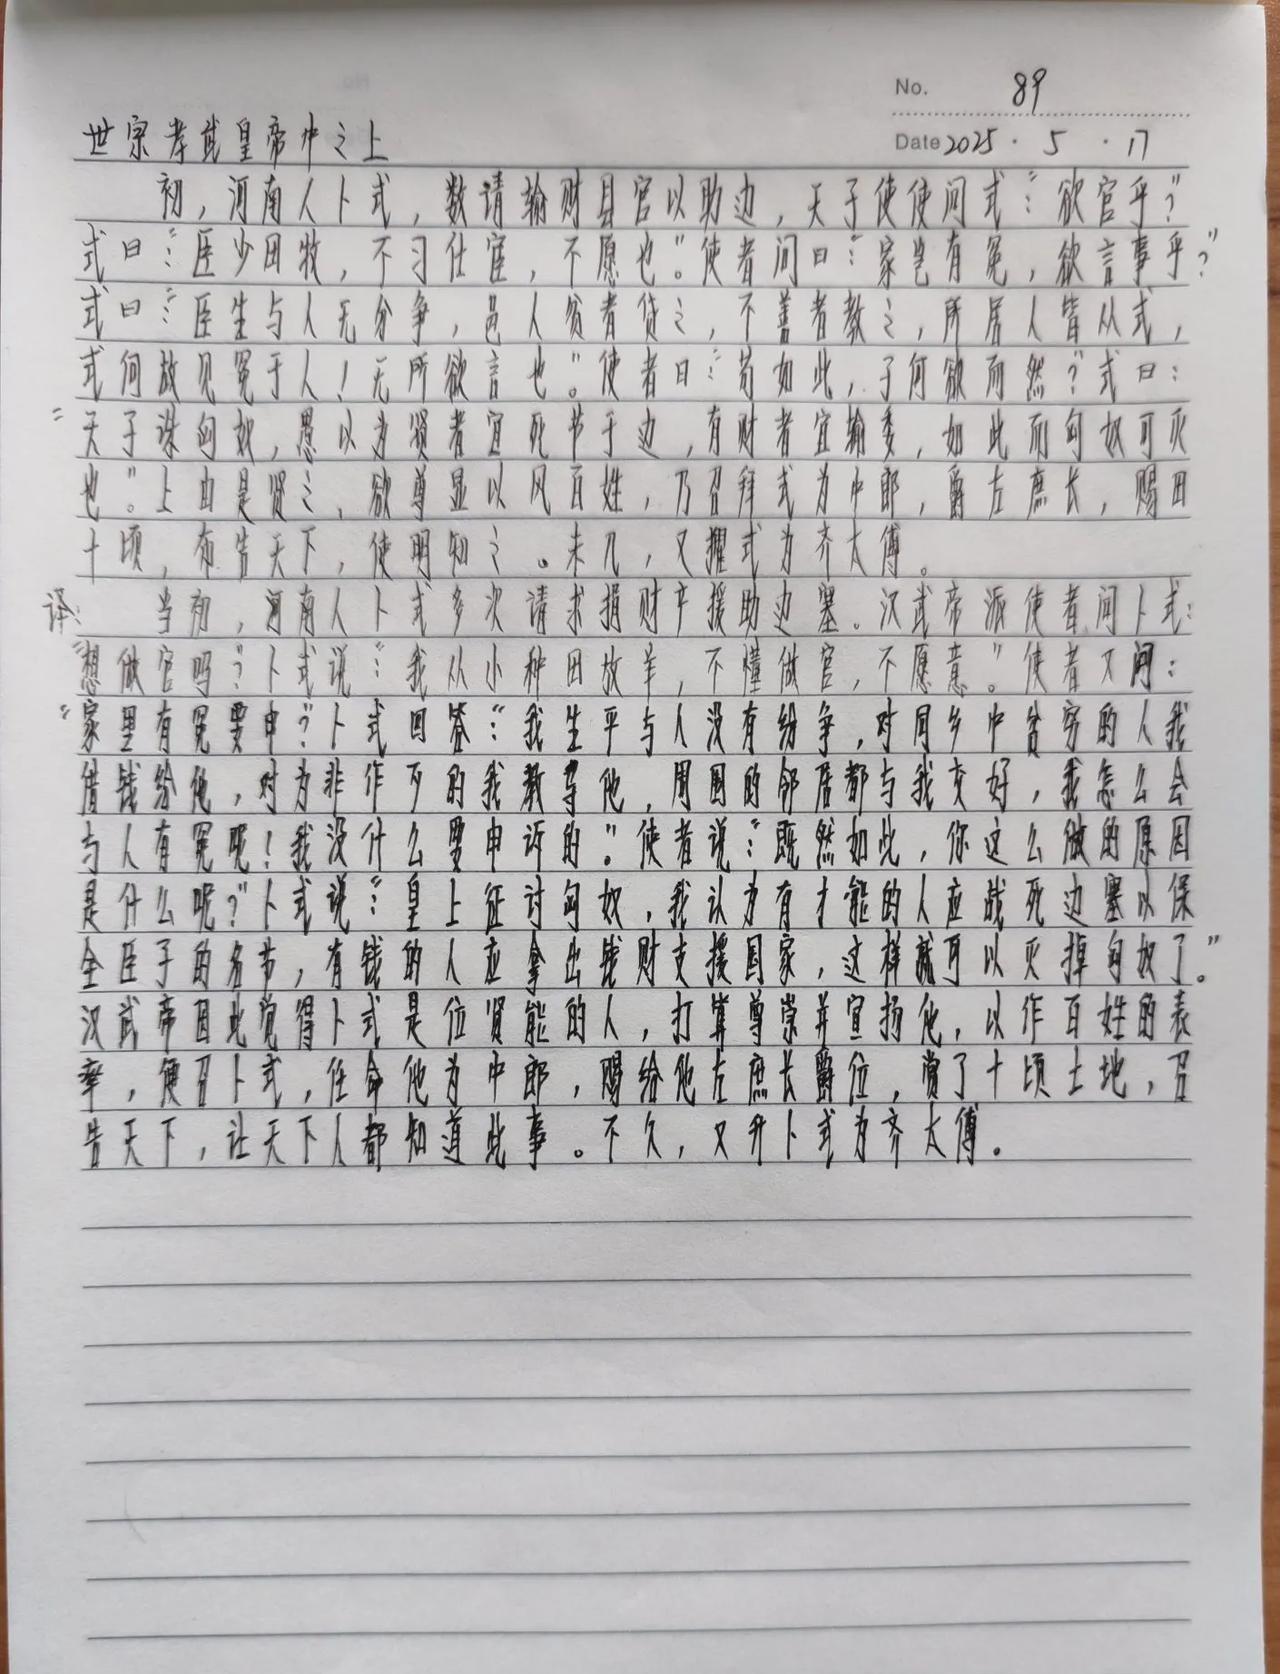 No. 89
世宗孝武皇帝中之上
Date 2025 · 5 · 17
初，河南人卜式，数请输财县官以助边，天子使使问式：“欲官乎？”
式曰：“臣少田牧，不习仕宦，不愿也。”使者问曰：“家岂有冤，欲言事乎？”
式曰：“臣生与人无分争，邑人贫者贷之，不善者教之，所居人皆从式，
式何故见冤于人！无所欲言也。”使者曰：“苟如此，子何欲而然？”式曰：
“天子诛匈奴，愚以为贤者宜死节于边，有财者宜输委，如此而匈奴可灭
也。”上由是贤之，欲尊显以风百姓，乃召拜式为中郎，爵左庶长，赐田
十顷，布告天下，使明知之。未几，又擢式为齐太傅。
译：当初，河南人卜式多次请求捐财产援助边塞。汉武帝派使者问卜式：
“想做官吗？”卜式说：“我从小种田放羊，不懂做官，不愿意。”使者又问：
“家里有冤要申？”卜式回答：“我生平与人没有纷争，对同乡中贫穷的人我
借钱给他，对为非作歹的我教导他，周围的邻居都与我交好，我怎么会
与人有冤呢！我没什么要申诉的。”使者说：“既然如此，你这么做的原因
是什么呢？”卜式说：“皇上征讨匈奴，我认为有才能的人应战死边塞以保
全臣子的名节，有钱的人应拿出钱财支援国家，这样就可以灭掉匈奴了。”
汉武帝因此觉得卜式是位贤能的人，打算尊崇并宣扬他，以作百姓的表
率，便召卜式，任命他为中郎，赐给他左庶长爵位，赏了十顷土地，召
告天下，让天下人都知道此事。不久，又升卜式为齐太傅。